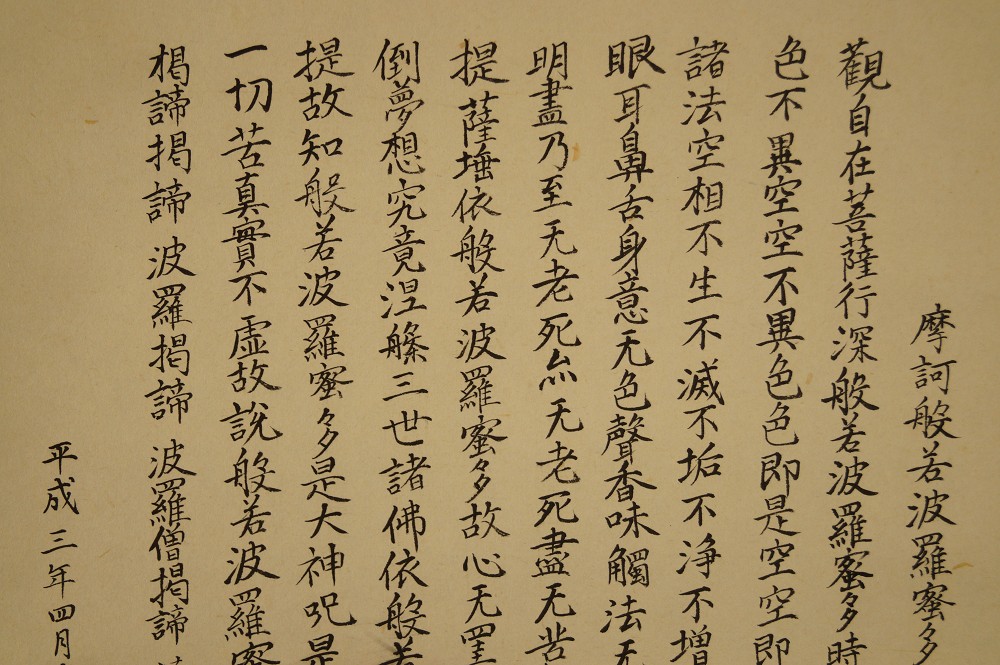 摩訶般若波羅蜜多
觀自在菩薩行深般若波羅蜜多時
色不異空空不異色色即是空空即
諸法空相不生不滅不垢不淨不增
眼耳鼻舌身意无色聲香味觸法无
明盡乃至无老死亦无老死盡无苦
提薩埵依般若波羅蜜多故心无罣
倒夢想究竟涅槃三世諸佛依般若
提故知般若波羅蜜多是大神呪是
一切苦真實不虛故說般若波羅蜜
揭諦揭諦波羅揭諦波羅僧揭諦
平成三年四月